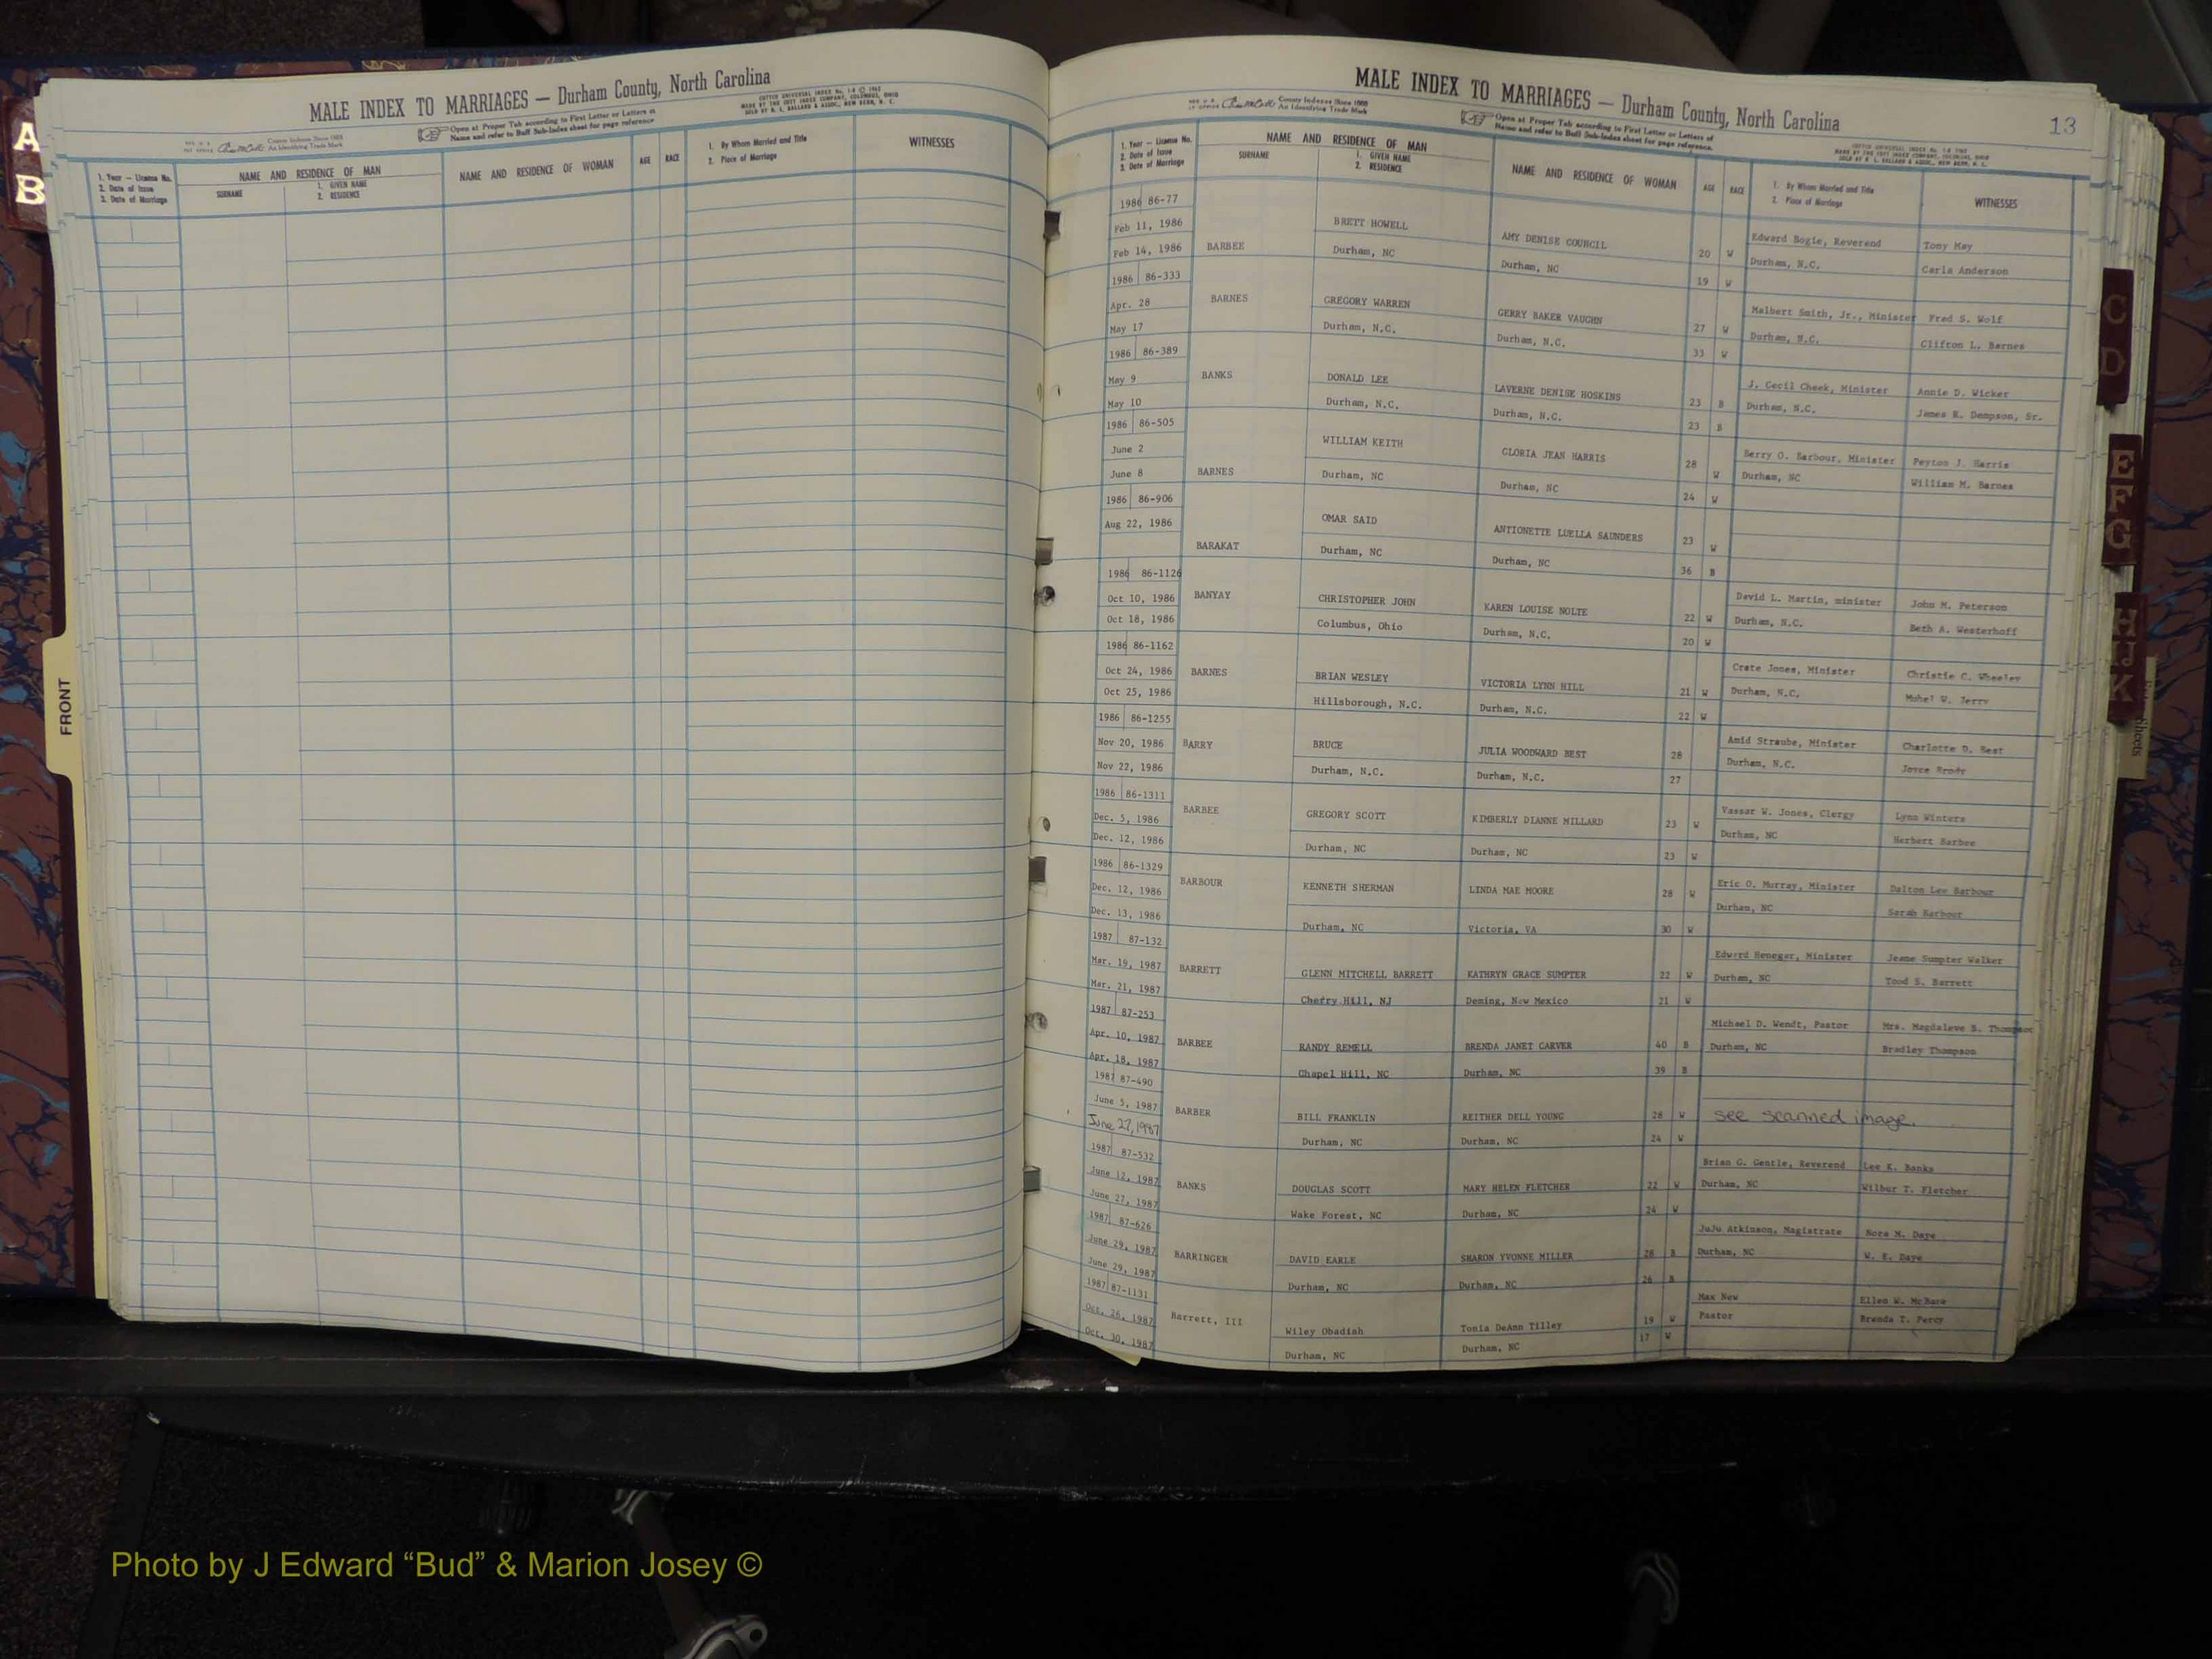 A
B
FRONT
MALE INDEX TO MARRIAGES — Durham County, North Carolina
Open at Proper Tab according to First Letter or Letters of
Name and refer to Buff Sub-Index sheet for page reference
1. Year — License No.
2. Date of Issue
3. Date of Marriage
NAME AND RESIDENCE OF MAN
SURNAME
1. GIVEN NAME
2. RESIDENCE
NAME AND RESIDENCE OF WOMAN
AGE
RACE
1. By Whom Married and Title
2. Place of Marriage
WITNESSES
MALE INDEX TO MARRIAGES — Durham County, North Carolina
13
Open at Proper Tab according to First Letter or Letters of
Name and refer to Buff Sub-Index sheet for page reference.
1. Year — License No.
2. Date of Issue
3. Date of Marriage
NAME AND RESIDENCE OF MAN
SURNAME
1. GIVEN NAME
2. RESIDENCE
NAME AND RESIDENCE OF WOMAN
AGE
RACE
1. By Whom Married and Title
2. Place of Marriage
WITNESSES
1986 86-77
Feb 11, 1986 BRETT HOWELL AMY DENISE COUNCIL 20 W Edward Bogie, Reverend Tony May
Feb 14, 1986 BARBEE Durham, NC Durham, NC 19 W Durham, N.C. Carla Anderson
1986 86-333
Apr. 28 BARNES GREGORY WARREN GERRY BAKER VAUGHN 27 W Malbert Smith, Jr., Minister Fred S. Wolf
May 17 Durham, N.C. Durham, N.C. 33 W Durham, N.C. Clifton L. Barnes
1986 86-389
May 9 BANKS DONALD LEE LAVERNE DENISE HOSKINS 23 B J. Cecil Cheek, Minister Annie D. Wicker
May 10 Durham, N.C. Durham, N.C. 23 B Durham, N.C. James R. Dempson, Sr.
1986 86-505
June 2 WILLIAM KEITH GLORIA JEAN HARRIS 28 W Berry O. Barbour, Minister Peyton J. Harris
June 8 BARNES Durham, NC Durham, NC 24 W Durham, NC William M. Barnes
1986 86-906
Aug 22, 1986 OMAR SAID ANTIONETTE LUELLA SAUNDERS 23 W
BARAKAT Durham, NC Durham, NC 36 B
1986 86-1126
Oct 10, 1986 BANYAY CHRISTOPHER JOHN KAREN LOUISE NOLTE 22 W David L. Martin, minister John M. Peterson
Oct 18, 1986 Columbus, Ohio Durham, N.C. 20 W Durham, N.C. Beth A. Westerhoff
1986 86-1162
Oct 24, 1986 BARNES BRIAN WESLEY VICTORIA LYNN HILL 21 W Crate Jones, Minister Christie C. Wheeley
Oct 25, 1986 Hillsborough, N.C. Durham, N.C. 22 W Durham, N.C. Mabel W. Jerry
1986 86-1255
Nov 20, 1986 BARRY BRUCE JULIA WOODWARD BEST 28 Amid Straube, Minister Charlotte D. Best
Nov 22, 1986 Durham, N.C. Durham, N.C. 27 Durham, N.C. Joyce Brody
1986 86-1311
Dec. 5, 1986 BARBEE GREGORY SCOTT KIMBERLY DIANNE MILLARD 23 W Vassar W. Jones, Clergy Lynn Winters
Dec. 12, 1986 Durham, NC Durham, NC 23 W Durham, NC Herbert Barbee
1986 86-1329
Dec. 12, 1986 BARBOUR KENNETH SHERMAN LINDA MAE MOORE 28 W Eric O. Murray, Minister Dalton Lee Barbour
Dec. 13, 1986 Durham, NC Victoria, VA 30 W Durham, NC Sarah Barbour
1987 87-132
Mar. 19, 1987 BARRETT GLENN MITCHELL BARRETT KATHRYN GRACE SUMPTER 22 W Edward Heneger, Minister Jeane Sumpter Walker
Mar. 21, 1987 Cherry Hill, NJ Deming, New Mexico 21 W Durham, NC Todd S. Barrett
1987 87-253
Apr. 10, 1987 BARBEE RANDY REMELL BRENDA JANET CARVER 40 B Michael D. Wendt, Pastor Mrs. Magdaleve B. Thompson
Apr. 18, 1987 Chapel Hill, NC Durham, NC 39 B Durham, NC Bradley Thompson
1987 87-490
June 5, 1987 BARBER BILL FRANKLIN REITHER DELL YOUNG 28 W see scanned image.
June 27, 1987 Durham, NC Durham, NC 24 W
1987 87-532
June 12, 1987 BANKS DOUGLAS SCOTT MARY HELEN FLETCHER 22 W Brian G. Gentle, Reverend Lee K. Banks
June 27, 1987 Wake Forest, NC Durham, NC 24 W Durham, NC Wilbur T. Fletcher
1987 87-626
June 29, 1987 BARRINGER DAVID EARLE SHARON YVONNE MILLER 28 B JuJu Atkinson, Magistrate Nora M. Daye
June 29, 1987 Durham, NC Durham, NC 26 B Durham, NC W. E. Daye
1987 87-1131
Oct. 26, 1987 Barrett, III Wiley Obadiah Tonia DeAnn Tilley 19 W Max New Ellen W. McBane
Oct. 30, 1987 Durham, NC Durham, NC 17 W Pastor Brenda T. Percy
C
D
E
F
G
H
IJ
K
Sheets
Photo by J Edward “Bud” & Marion Josey ©